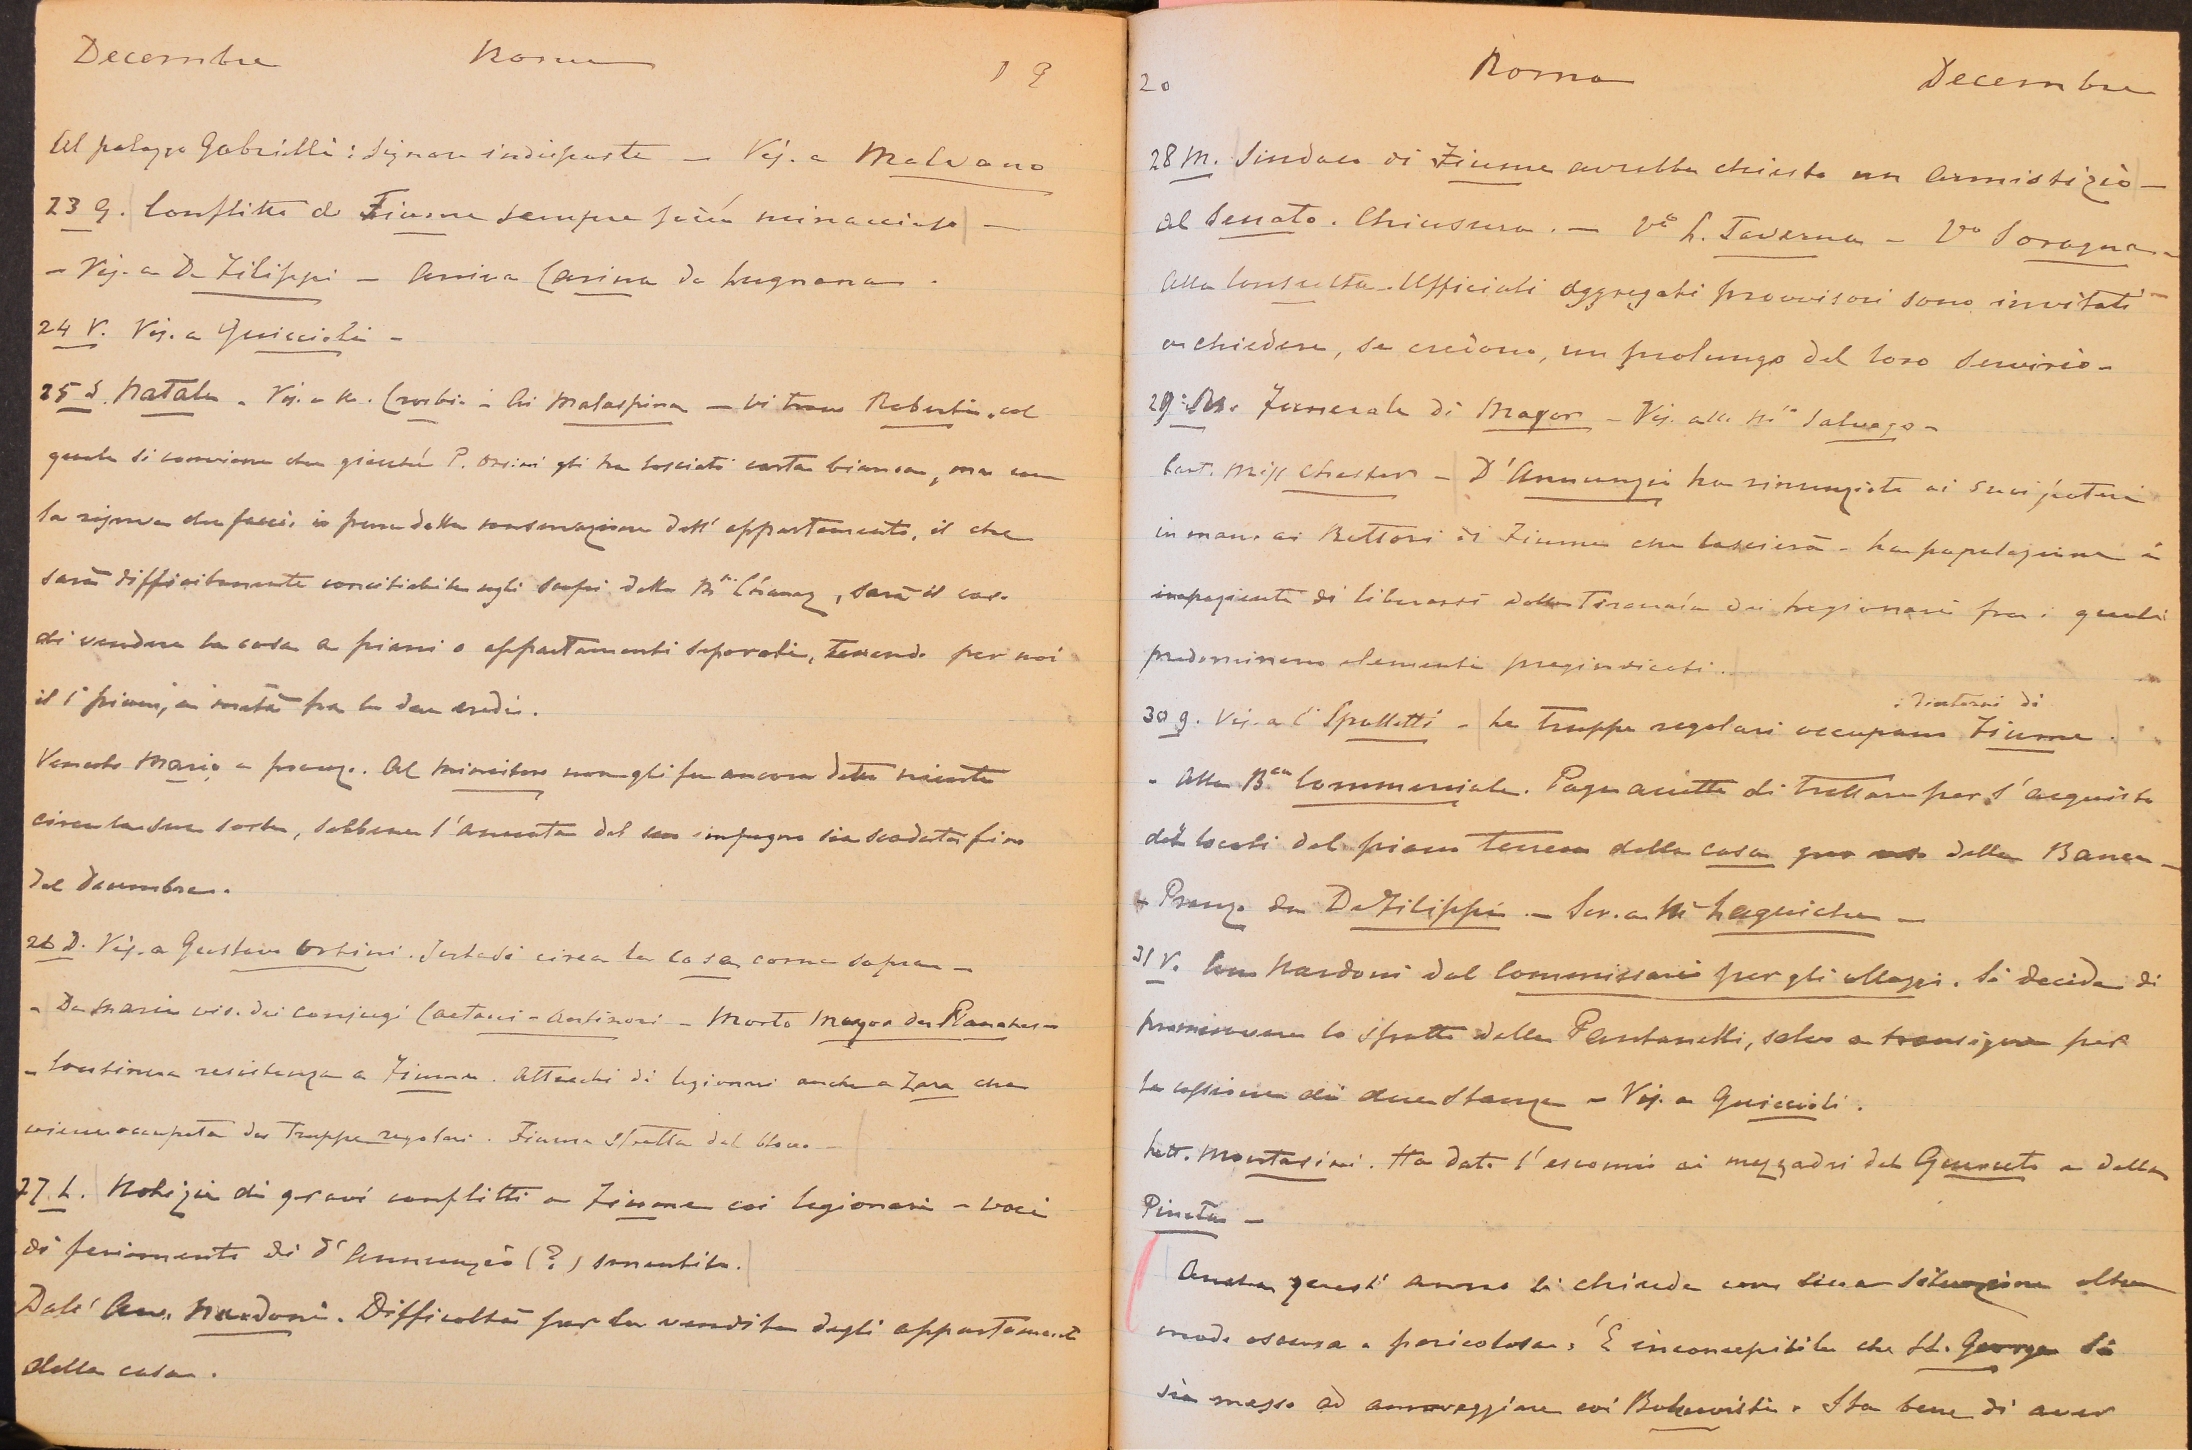 Decembre Roma 19
Al palazzo Gabrielli: Signora indisposta — Vis. a Malvano
23 G. Conflitto di Fiume sempre più minaccioso —
— Vis. a De Filippi — Arriva Carina da Lugnana.
24 V. Vis. a Guiccioli —
25 S. Natale. Vis. a - Ai Malaspina — vi trovo Robertin, col
quale si conviene che giacché P. Orsini gli ha lasciato carta bianca, ma con
la riserva che faccia in favore della conservazione dell'appartamento, il che
sarà difficilmente conciliabile cogli scopi della, sarà il caso
di vendere la casa a piani o appartamenti separati, tenendo per noi
il 1° piano, a metà fra le due eredi.
Venuto Mario a pranzo. Al Ministero non gli fu ancora detto niente
circa la sua sorte, sebbene l'annata del suo impegno sia scaduta fino
dal decembre.
26 D. Vis. a Gustavo Orsini. Intesi circa la casa come sopra —
— Da Maria vis. dei conjugi Caetani-Antinori — Morto Mayor des Planches —
— Continua resistenza a Fiume. Attacchi di legionari anche a Zara che
viene occupata da truppe regolari. Fiume stretta dal blocco —
27 L. Notizie di gravi conflitti a Fiume coi legionari — voci
di ferimento di d'Annunzio (?) smentita.
Dall' Avv. Nardoni. Difficoltà per la vendita degli appartamenti
della casa.
20 Roma Decembre
28 M. Sindaco di Fiume avrebbe chiesto un armistizio —
Al Senato. Chiusura. — Va L. Taverna — Va Soragna —
Alla Consulta. Ufficiali aggregati provvisori sono invitati
a chiedere, se credono, un prolungo del loro servizio —
29 M. Funerale di Mayor — Vis. alla Salvago —
Cart. Miss Chester — D'Annunzio ha rinunziato ai suoi poteri
in mano ai Rettori di Fiume che lascierà — La popolazione è
impaziente di liberarsi dalla tirannia dei legionari fra i quali
predominano elementi pregiudicati.
30 G. Vis. a Spalletti — Le truppe regolari occupano i dintorni di Fiume.
— Alla Bca Commerciale. Pagu accetta di trattare per l'acquisto
dei locali del piano terreno della casa pro uso della Banca —
— Pranzo da De Filippi — Ser. a Laguiche —
31 V. Con Nardoni dal Commissario per gli alloggi. Si decide di
promuovere lo sfratto della Pantanelli, salvo a transigere per
la cessione di due stanze — Vis. a Guiccioli.
Lett. Montasini. Ha dato l'escomio ai mezzadri del Guasceto e della
Pineta —
Anche quest' anno si chiude con una situazione oltre
modo oscura e pericolosa. È inconcepibile che Ll. George si
sia messo ad amoreggiare coi Bolsevisti. Sta bene di aver